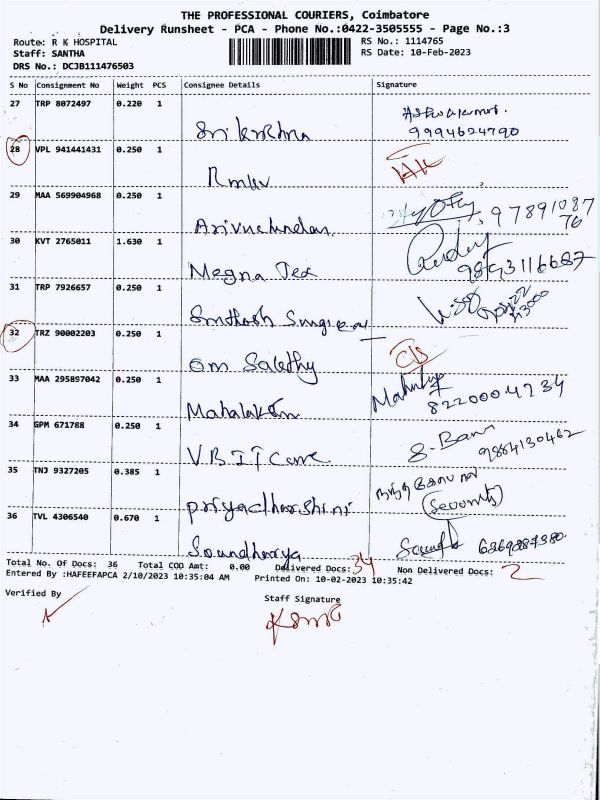 THE PROFESSIONAL COURIERS, Coimbatore
Delivery Runsheet - PCA - Phone No.:0422-3505555 - Page No.:3
Route: R K HOSPITAL
RS No.: 1114765
Staff: SANTHA
RS Date: 10-Feb-2023
DRS No.: DCJB111476503
S No Consignment No Weight PCS Consignee Details Signature
27 TRP 8072497 0.220 1
Sri krishna
9994624790
28 VPL 941441431 0.250 1
Rmkv
29 MAA 569904968 0.250 1
97891087
76
30 KVT 2765011 1.630 1
Megna Tex
9893116687
31 TRP 7926657 0.250 1
Santhosh Surgical
32 TRZ 90002203 0.250 1
Om Sakthy
33 MAA 295897042 0.250 1
Mahalakshmi
8220004734
34 GPM 671788 0.250 1
VBIT Care
9884130462
35 TNJ 9327205 0.385 1
Priyadharshini
(Security)
36 TVL 4306540 0.670 1
Soundharya
Total No. Of Docs: 36 Total COD Amt: 0.00 Delivered Docs: 34 Non Delivered Docs: 2
Entered By :HAFEEFAPCA 2/10/2023 10:35:04 AM Printed On: 10-02-2023 10:35:42
Verified By
Staff Signature